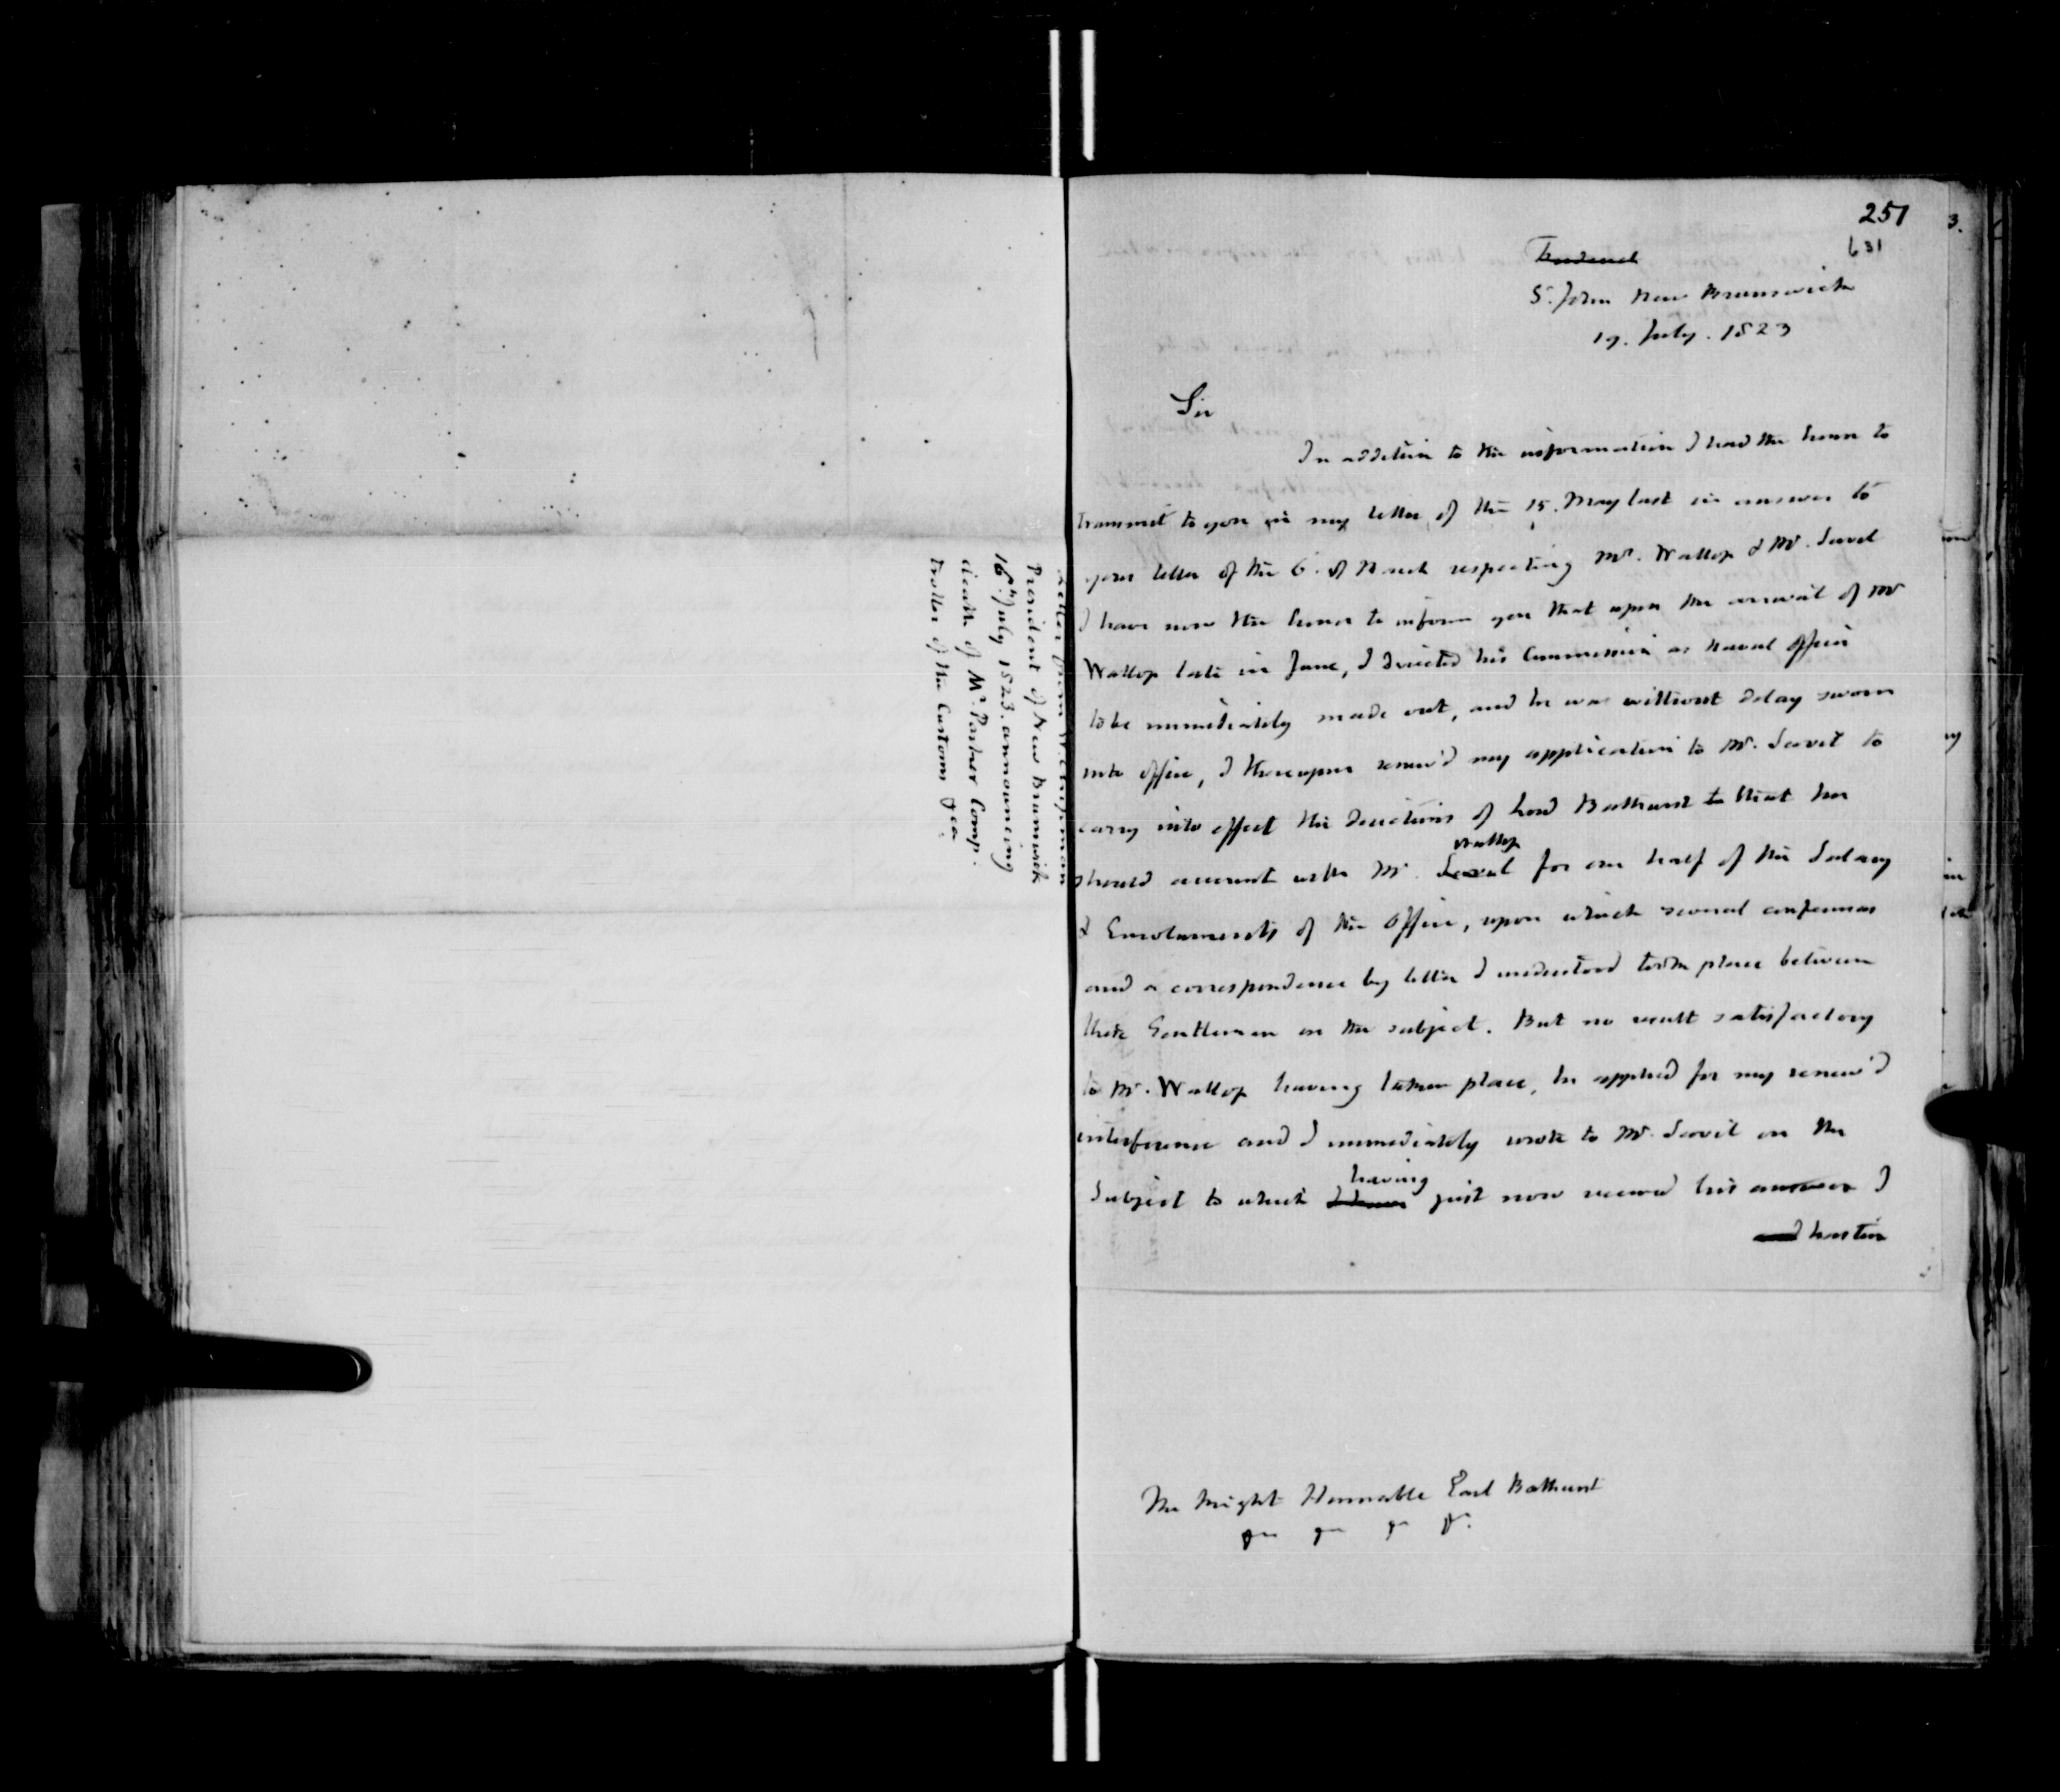 Letter from W. Chipman
President of New Brunswick
16th July 1823. announcing
death of Mr. Parker Comp.
troller of the Customs &ca.
251
631
St. John New Brunswick
19. July. 1823
Sir
In addition to the information I had the honor to
transmit to you in my letter of the 15. May last in answer to
your letter of the 6. of March respecting Mr. Wallop & Mr. Savel
I have now the honor to inform you that upon the arrival of Mr
Wallop late in June, I directed his Commission as Naval Officer
to be immediately made out, and he was without delay sworn
into office, I thereupon renew'd my application to Mr. Savel to
carry into effect the directions of Lord Bathurst to that he
should account with Mr. Savel Wallop for one half of the Salary
& Emoluments of the Office, upon which several conferences
and a correspondence by letter I understood took place between
these Gentlemen on the subject. But no result satisfactory
to Mr. Wallop having taken place, he applied for my renew'd
interference and I immediately wrote to Mr. Savel on the
Subject to which having just now received his answer I
and hasten
The Right Honorable Earl Bathurst
&c &c &c &c.
3.